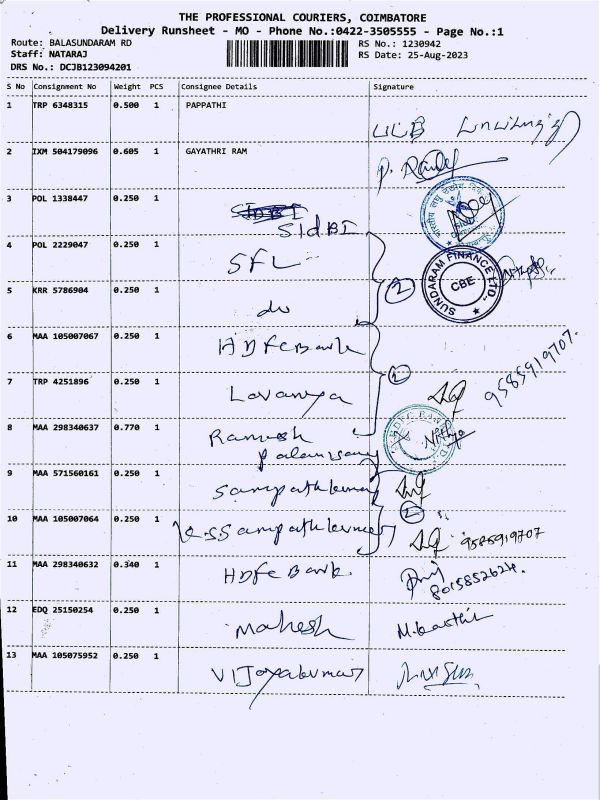 THE PROFESSIONAL COURIERS, COIMBATORE
Delivery Runsheet - MO - Phone No.:0422-3505555 - Page No.:1
Route: BALASUNDARAM RD RS No.: 1230942
Staff: NATARAJ RS Date: 25-Aug-2023
DRS No.: DCJB123094201
S No Consignment No Weight PCS Consignee Details Signature
1 TRP 6348315 0.500 1 PAPPATHI
2 IXM 504179096 0.605 1 GAYATHRI RAM
3 POL 1338447 0.250 1 SIdBI
4 POL 2229047 0.250 1 SFL
SUNDARAM FINANCE LTD., CBE
5 KRR 5786904 0.250 1 do
6 MAA 105007067 0.250 1 HDfcBank
7 TRP 4251896 0.250 1 Lavanya 9585919707.
8 MAA 298340637 0.770 1 Ramesh
9 MAA 571560161 0.250 1 Sampathkumar
10 MAA 105007064 0.250 1 K.S.Sampathkumar 9585919707
11 MAA 298340632 0.340 1 HDfc Bank. 8015852624.
12 EDQ 25150254 0.250 1 Mahesh M.karthi
13 MAA 105075952 0.250 1 VIJayakumar